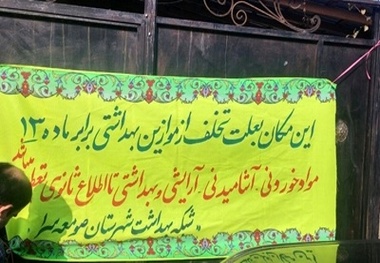 این مکان بعلت تخلف از موازین بهداشتی برابر ماده ۱۳
مواد خوردنی، آشامیدنی، آرایشی و بهداشتی تا اطلاع ثانوی تعطیل میباشد
شبکه بهداشت شهرستان صومعه سرا